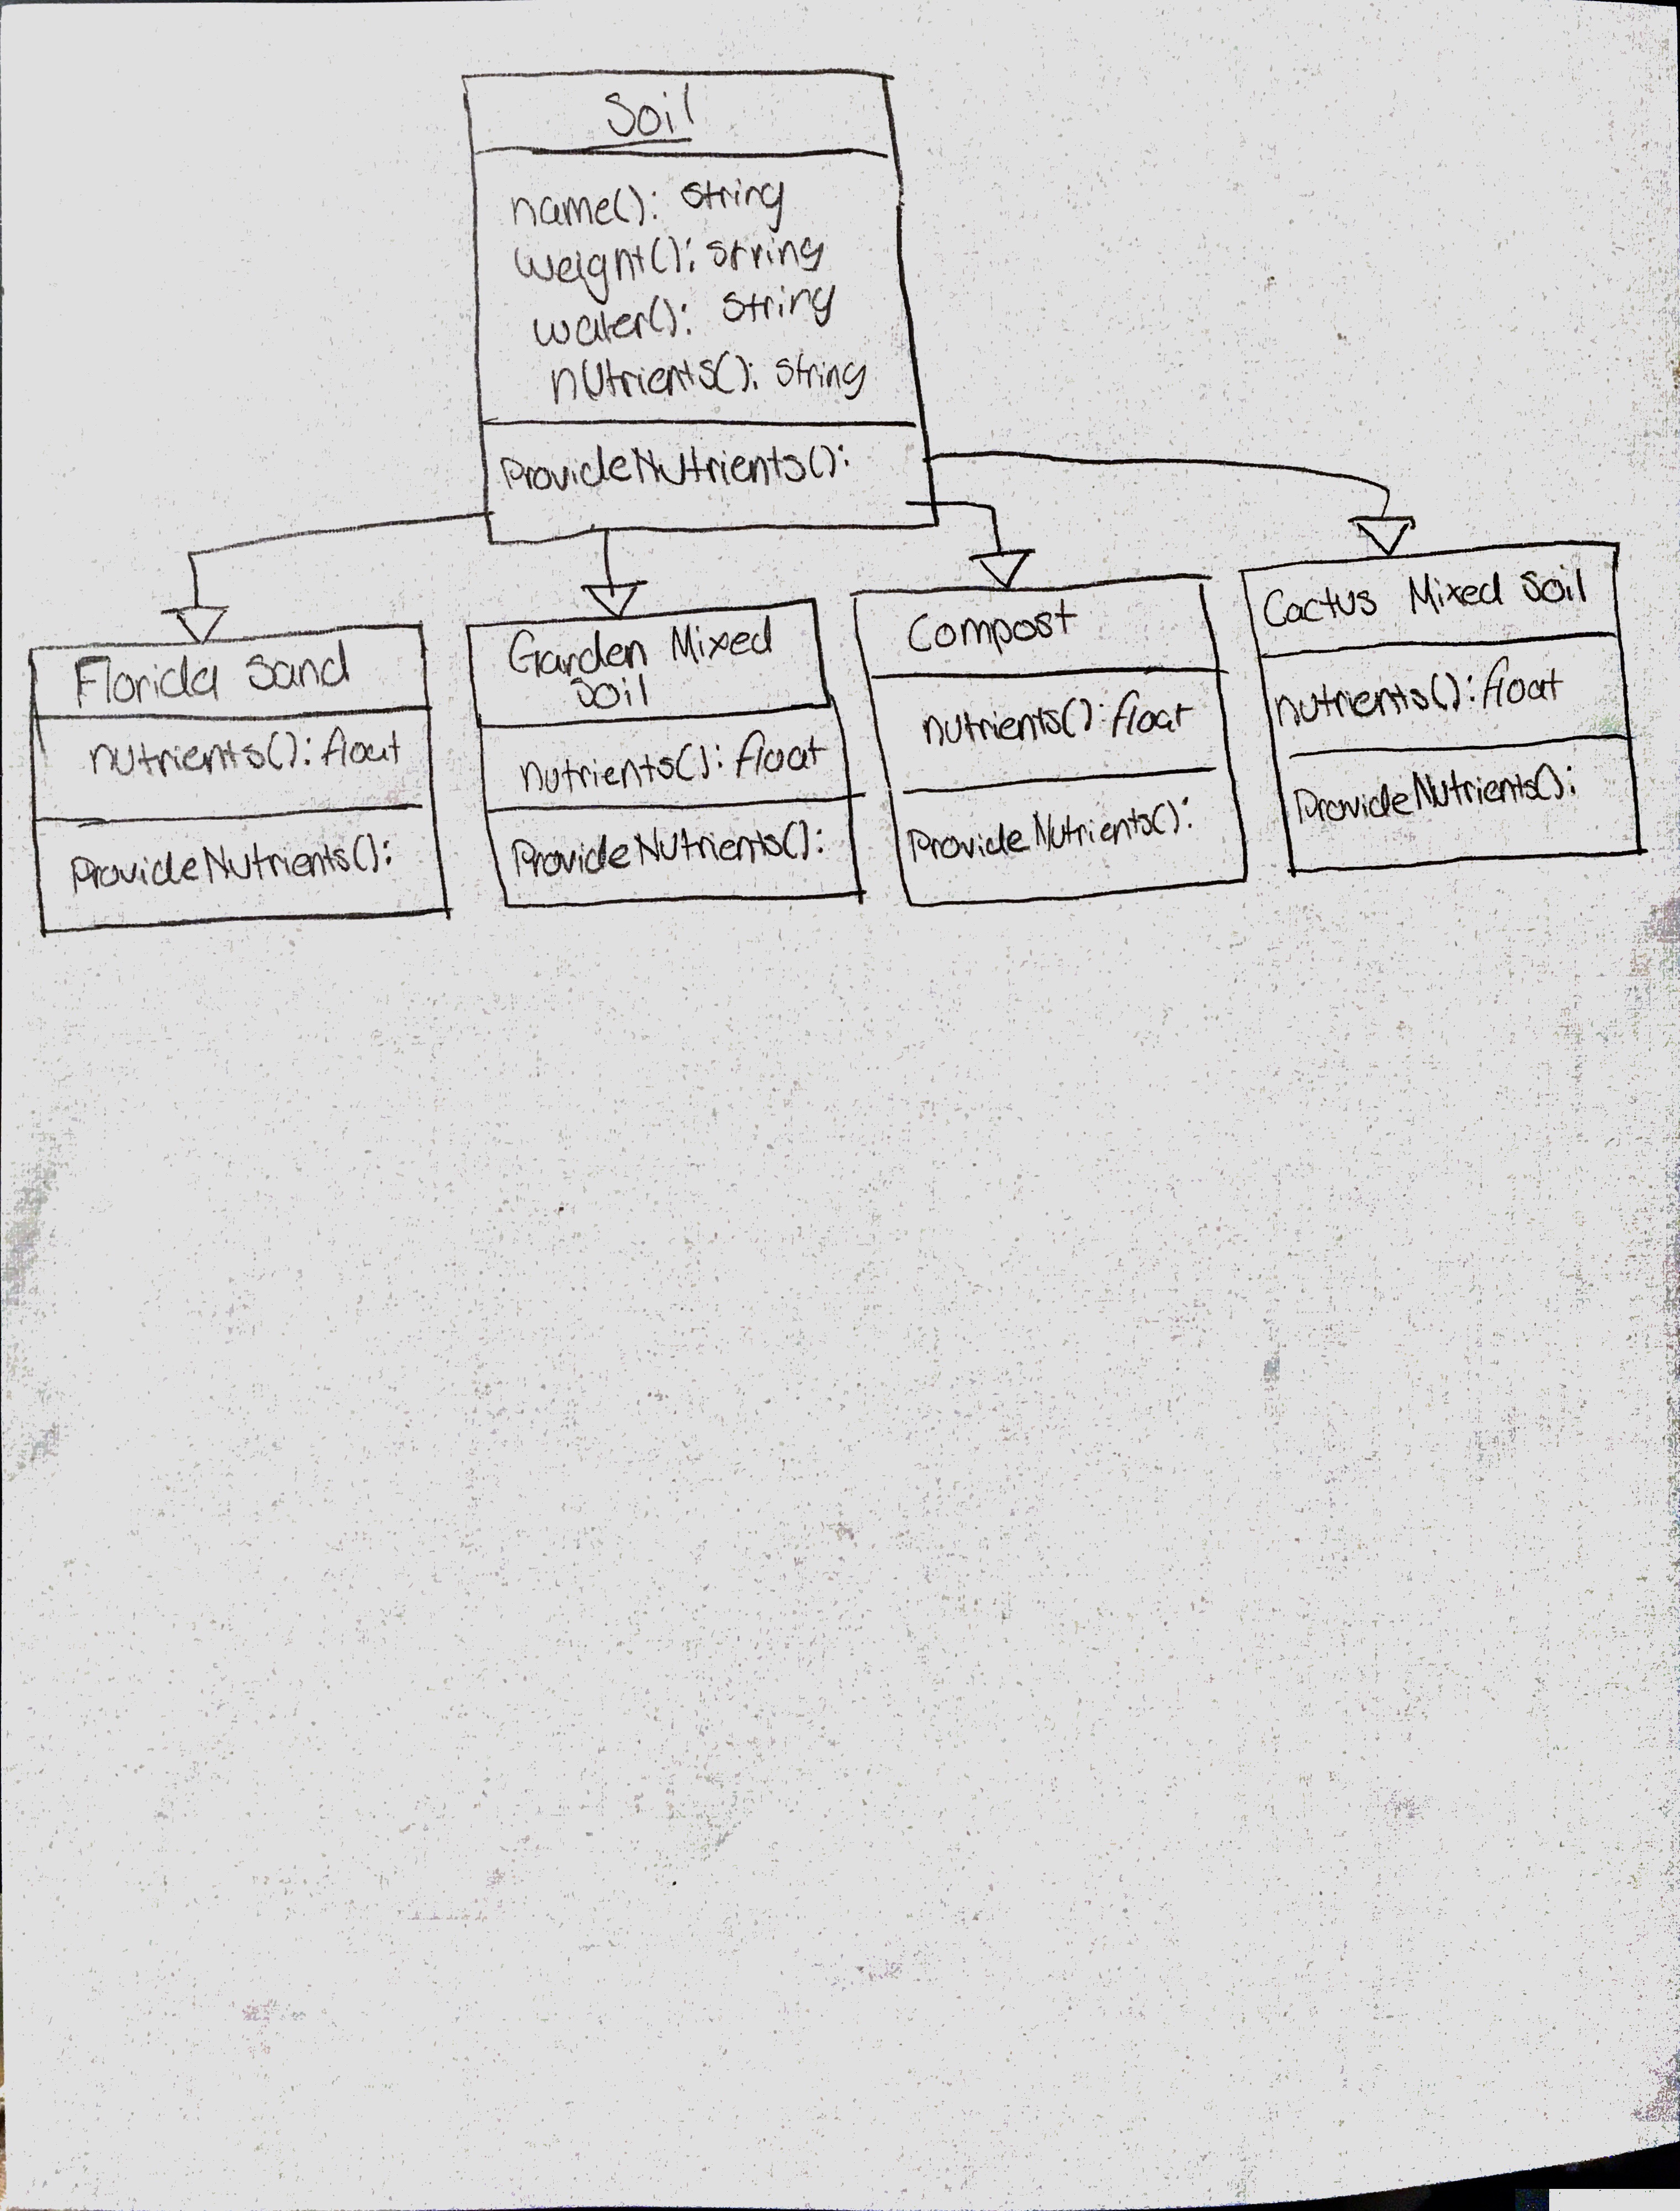 Soil
name(): string
weight(): string
water(): string
nutrients(): string
ProvideNutrients():
Florida Sand
nutrients(): float
ProvideNutrients():
Garden Mixed
Soil
nutrients(): float
ProvideNutrients():
Compost
nutrients(): float
ProvideNutrients():
Cactus Mixed Soil
nutrients(): float
ProvideNutrients():